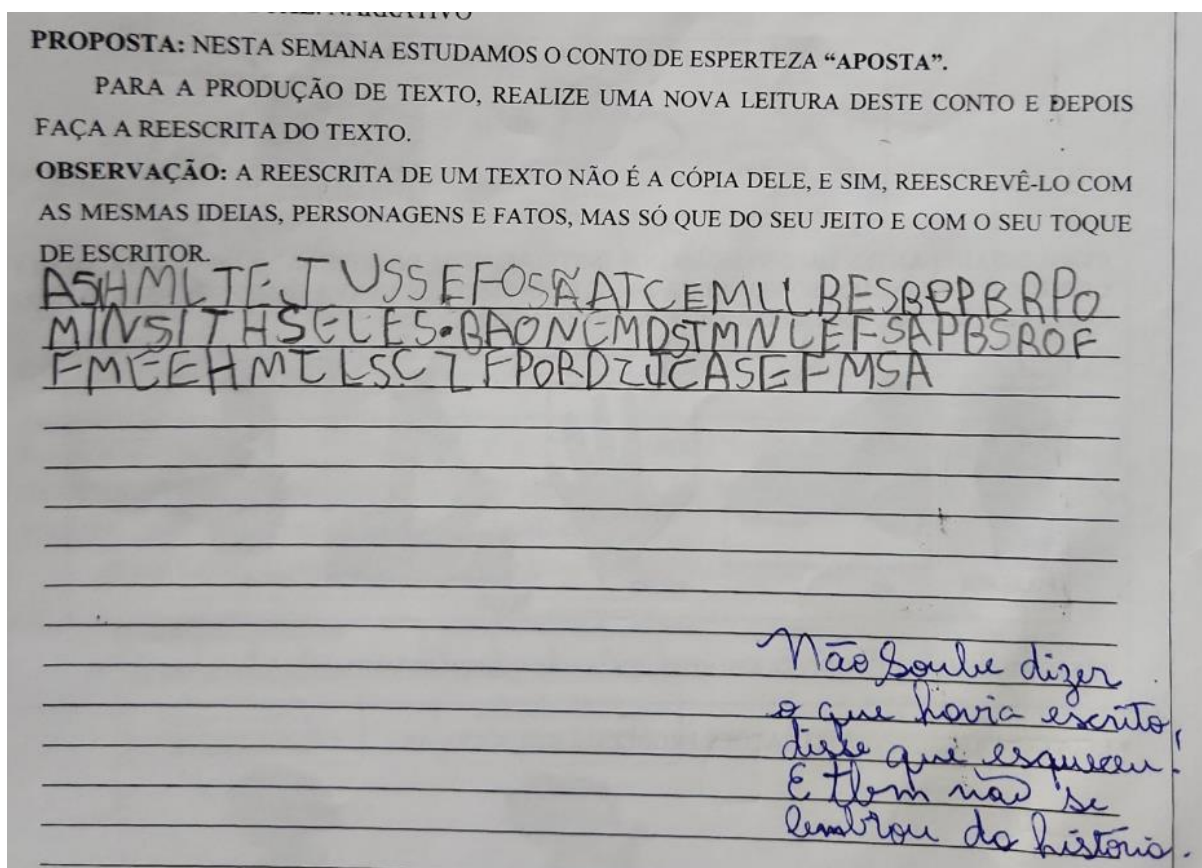 PROPOSTA: NESTA SEMANA ESTUDAMOS O CONTO DE ESPERTEZA “APOSTA”.
PARA A PRODUÇÃO DE TEXTO, REALIZE UMA NOVA LEITURA DESTE CONTO E DEPOIS
FAÇA A REESCRITA DO TEXTO.
OBSERVAÇÃO: A REESCRITA DE UM TEXTO NÃO É A CÓPIA DELE, E SIM, REESCREVÊ-LO COM
AS MESMAS IDEIAS, PERSONAGENS E FATOS, MAS SÓ QUE DO SEU JEITO E COM O SEU TOQUE
DE ESCRITOR.
ASHMLTEJUSSEFOSÃATCEMLLBESBPPBRPO
MINSITHSELES.BAONEMDSTMNLEFSAPBSROF
FMEEHMILSCZFPORDZUCASEFMSA
Não Soube dizer
o que havia escrito,
disse que esqueceu!
E tbem não se
lembrou da história.